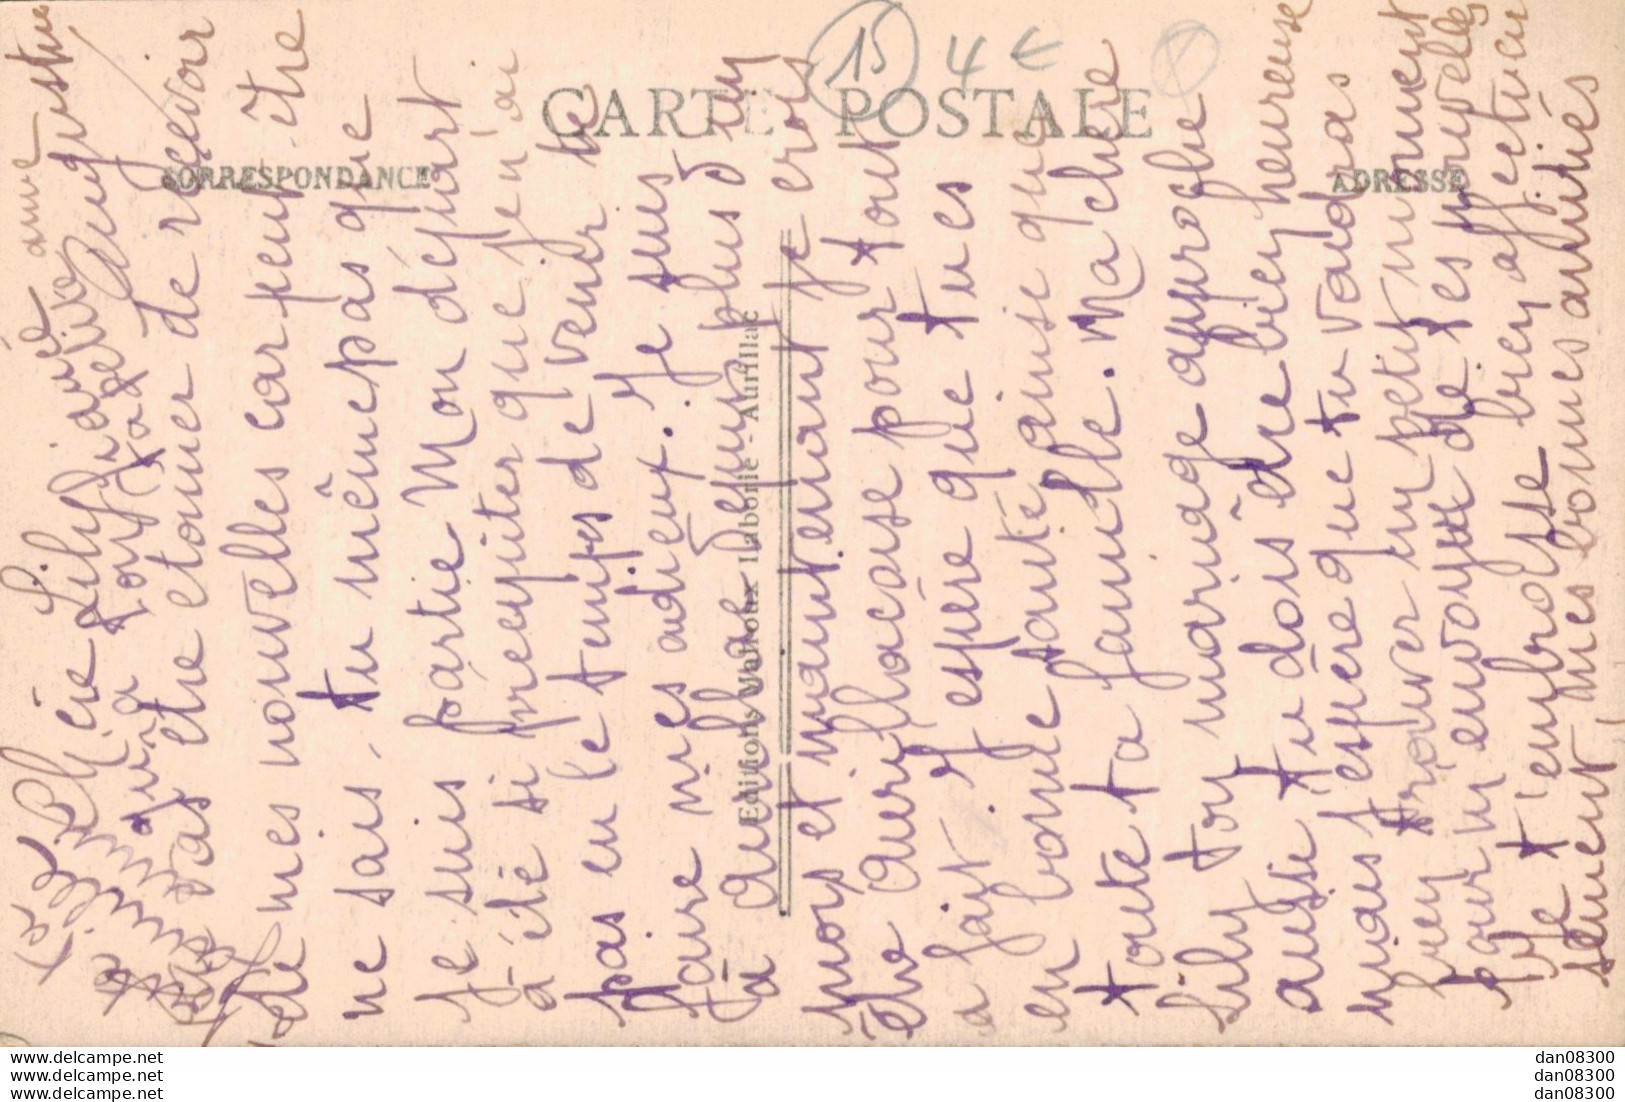 CARTE POSTALE
CORRESPONDANCE
ADRESSE
Editions Malroux Laborie - Aurillac
15
4 €
Chère Lily
Tu vas être étoner de recevoir
de mes nouvelles car peut-être
ne sais, tu même pas que
je suis partie Mon départ
a été si précipiter que je n'ai
pas eu le temps de venir te
faire mes adieux. Je suis
à Aurillac depuis plus d'un
mois et maintenant je crois
être Aurillacoise pour tout
a fait. J'espère que tu es
en bonne santé ainsi que
toute ta famille. Ma chère
Lily ton mariage approche
aussi tu dois être bien heureuse
mais j'espère que tu voudras
bien trouver un petit moment
pour m'envoyer de tes nouvelles
Je t'embrasse bien affectueu
sement, mes bonnes amitiés
Augustine
dan08300
dan08300
dan08300
dan08300
dan08300
dan08300